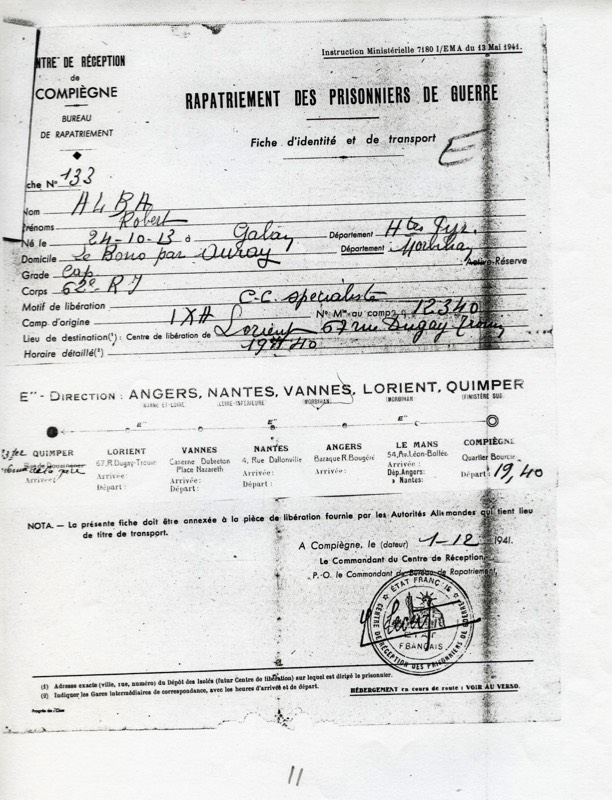 Instruction Ministérielle 7180 I/EMA du 13 Mai 1941.
NTRE DE RÉCEPTION
de
COMPIÈGNE
BUREAU
DE RAPATRIEMENT
RAPATRIEMENT DES PRISONNIERS DE GUERRE
Fiche d'identité et de transport
E
che N° 133
Nom ALBA
Prénoms Robert
Né le 24-10-13 à Galan Département Htes Pyr.
Domicile Le Bono par Auray Département Morbihan
Grade Cap. Active-Réserve
Corps 62e R I
Motif de libération C.C. spécialiste
Camp d'origine IXA N° Mle au camp 12340
Lieu de destination(¹) : Centre de libération de Lorient 67 rue Dugay Trouin
Horaire détaillé(²) 19H40
E" - DIRECTION : ANGERS, NANTES, VANNES, LORIENT, QUIMPER
MAINE-ET-LOIRE LOIRE-INFÉRIEURE (MORBIHAN) (MORBIHAN) (FINISTÈRE SUD)
QUIMPER LORIENT VANNES NANTES ANGERS LE MANS COMPIÈGNE
67, R. Dugay-Trouin Caserne Dubreton 4, Rue Dallonville 54, Av. Léon-Bollée Quartier Bourcet
Place Nazareth
Arrivée : Arrivée : Arrivée : Arrivée : Arrivée : Arrivée : Départ : 19,40
Départ : Départ : Départ : Départ : Dép. Angers :
» Nantes :
NOTA. — La présente fiche doit être annexée à la pièce de libération fournie par les Autorités Allemandes qui tient lieu
de titre de transport.
A Compiègne, le (dateur) 1-12 1941.
Le Commandant du Centre de Réception
P.-O. le Commandant du Bureau de Rapatriement,
ÉTAT FRANÇAIS
CENTRE DE RÉCEPTION DES PRISONNIERS DE GUERRE
ÉTAT
FRANÇAIS
(1) Adresse exacte (ville, rue, numéro) du Dépôt des Isolés (futur Centre de libération) sur lequel est dirigé le prisonnier.
(2) Indiquer les Gares intermédiaires de correspondance, avec les heures d'arrivée et de départ.
HÉBERGEMENT en cours de route : VOIR AU VERSO.
Progrès de l'Oise
11